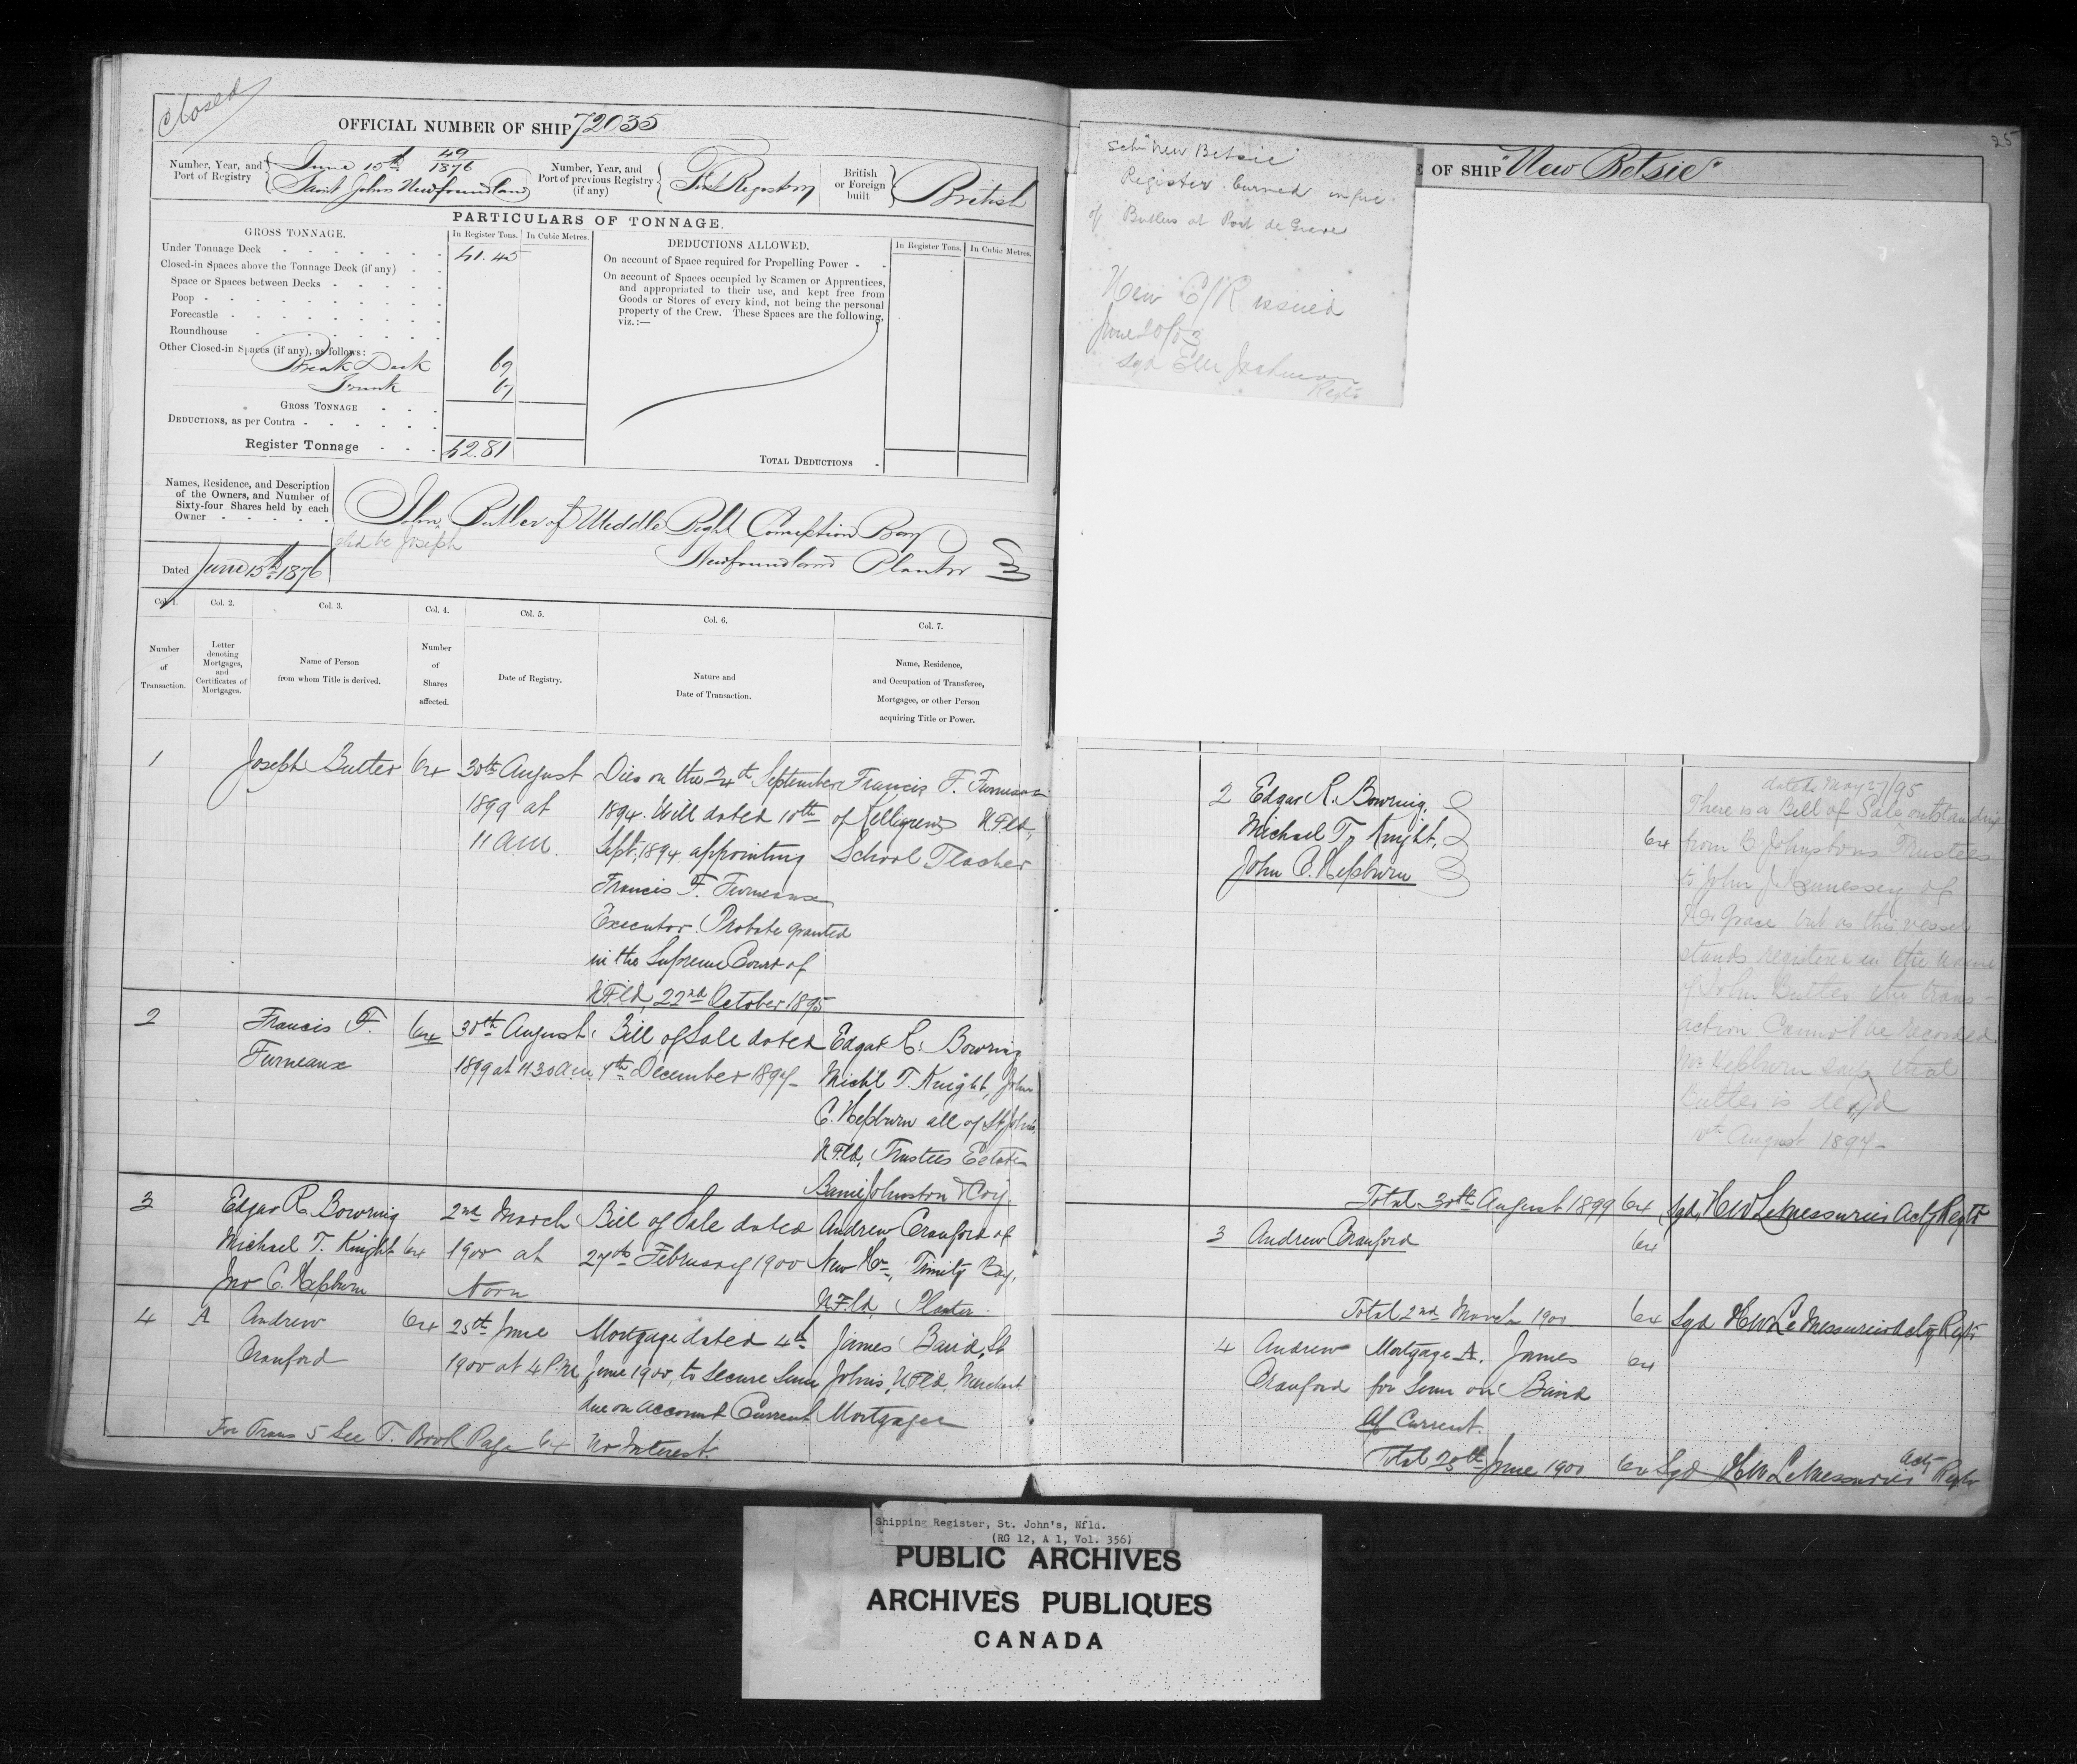 Closed
OFFICIAL NUMBER OF SHIP 72035
Number, Year, and Port of Registry
June 15th 49/1876
Saint Johns Newfoundland
Number, Year, and Port of previous Registry (if any)
First Registry
British or Foreign built
British
PARTICULARS OF TONNAGE.
GROSS TONNAGE.
In Register Tons. In Cubic Metres.
Under Tonnage Deck 41.45
Closed-in Spaces above the Tonnage Deck (if any)
Space or Spaces between Decks
Poop
Forecastle
Roundhouse
Other Closed-in Spaces (if any), as follows:
Break Deck 69
Trunk 67
GROSS TONNAGE
DEDUCTIONS, as per Contra
Register Tonnage 42.81
DEDUCTIONS ALLOWED.
In Register Tons. In Cubic Metres.
On account of Space required for Propelling Power
On account of Spaces occupied by Seamen or Apprentices,
and appropriated to their use, and kept free from
Goods or Stores of every kind, not being the personal
property of the Crew. These Spaces are the following,
viz.:—
TOTAL DEDUCTIONS
Names, Residence, and Description
of the Owners, and Number of
Sixty-four Shares held by each
Owner
John Butler of Middle Bight Conception Bay
shd be Joseph
Newfoundland Planter
Dated June 15th 1876
Col. 1. Col. 2. Col. 3. Col. 4. Col. 5. Col. 6. Col. 7.
Number of Transaction.
Letter denoting Mortgages, and Certificates of Mortgages.
Name of Person from whom Title is derived.
Number of Shares affected.
Date of Registry.
Nature and Date of Transaction.
Name, Residence, and Occupation of Transferee, Mortgagee, or other Person acquiring Title or Power.
1 Joseph Butler 64 30th August Dies on the 24th September Francis F. Furneaux
1899 at 1894. Will dated 10th of Kelligrews NFld,
11 am. Sept. 1894 appointing School Teacher
Francis F. Furneaux
Executor. Probate granted
in the Supreme Court of
NFld, 22nd October 1895
2 Francis F. 64 30th August Bill of Sale dated Edgar R. Bowring
Furneaux 1899 at 11.30 a.m. 7th December 1897 Michl T. Knight, John
C. Hepburn all of St Johns,
NFld, Trustees Estate
Barnes Johnston & Coy.
3 Edgar R. Bowring 2nd March Bill of Sale dated Andrew Cranford of
Michael T. Knight 64 1900 at 27th February 1900 New Hr, Trinity Bay,
Jno C. Hepburn Noon NFld, Planter
4 A Andrew 64 25th June Mortgage dated 4th James Baird, St
Cranford 1900 at 4 P.M. June 1900, to secure sum Johns, NFld, Merchant
due on account Current Mortgagee
For Trans 5 See T. Book Page 64 No Interest.
25
Schr "New Betsie"
Register burned in fire
of Butlers at Port de Grave
New C/R issued
June 20/03
Sgd
Regtr
E OF SHIP "New Betsie"
2 Edgar R. Bowring,
Michael T. Knight, 64
John C. Hepburn
dated May 27/95
There is a Bill of Sale outstanding
from B Johnstons Trustees
to John J Hennessey of
Hr Grace but as this vessel
stands registered in the name
of John Butler the trans-
action Cannot be Recorded.
Mr Hepburn says that
Butler is dead
10th August 1897
Total 30th August 1899 64 Sgd, HW LeMessurier Actg Regtr
3 Andrew Cranford 64
Total 2nd March 1900 64 Sgd HW LeMessurier Actg Regtr
4 Andrew Mortgage A. James 64
Cranford for Sum on Baird
A/ Current.
Total 25th June 1900 64 Sgd HW LeMessurier Actg Regtr
Shipping Register, St. John's, Nfld.
(RG 12, A 1, Vol. 356)
PUBLIC ARCHIVES
ARCHIVES PUBLIQUES
CANADA